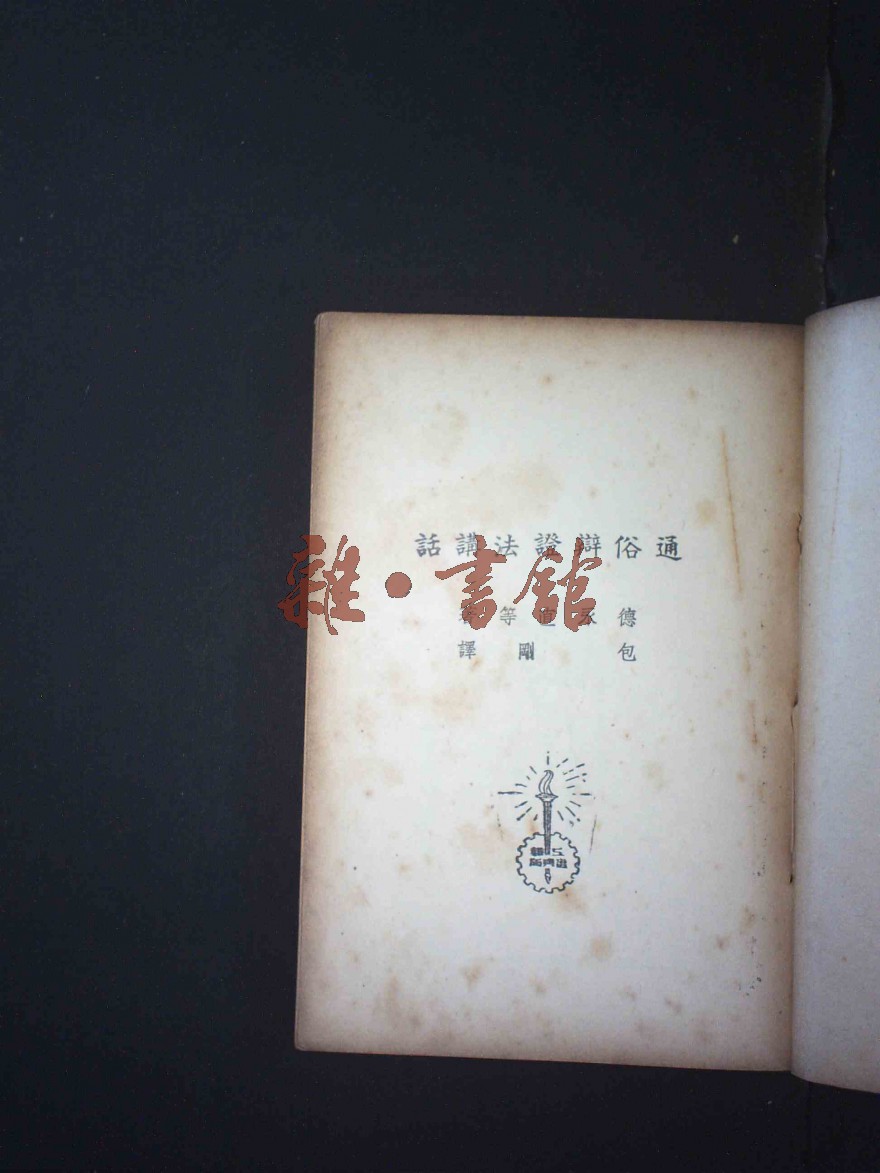 通俗辯證法講話
雜·書館
德永直等著
包剛譯